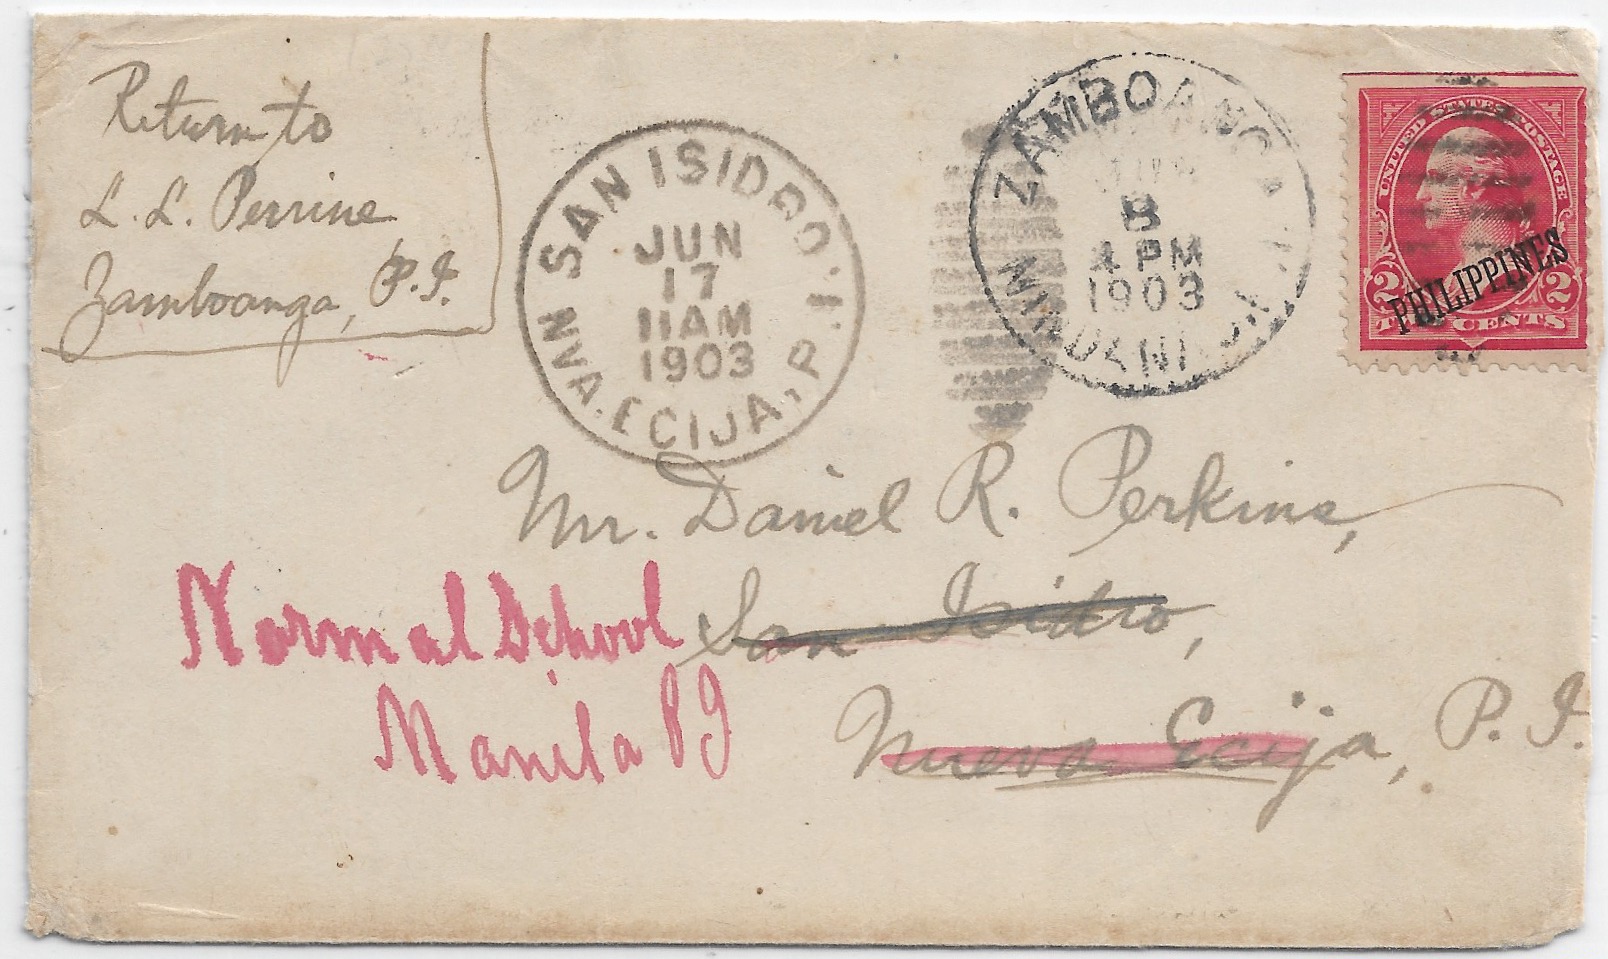 Return to
L. L. Perrine
Zamboanga, P.I.
SAN ISIDRO
NVA. ECIJA, P.I.
JUN
17
11AM
1903
ZAMBOANGA
MINDANAO
8
4 PM
1903
UNITED STATES POSTAGE
PHILIPPINES
2 2
TWO CENTS
Mr. Daniel R. Perkins,
San Isidro,
Nueva Ecija, P. I.
Normal School
Manila PI